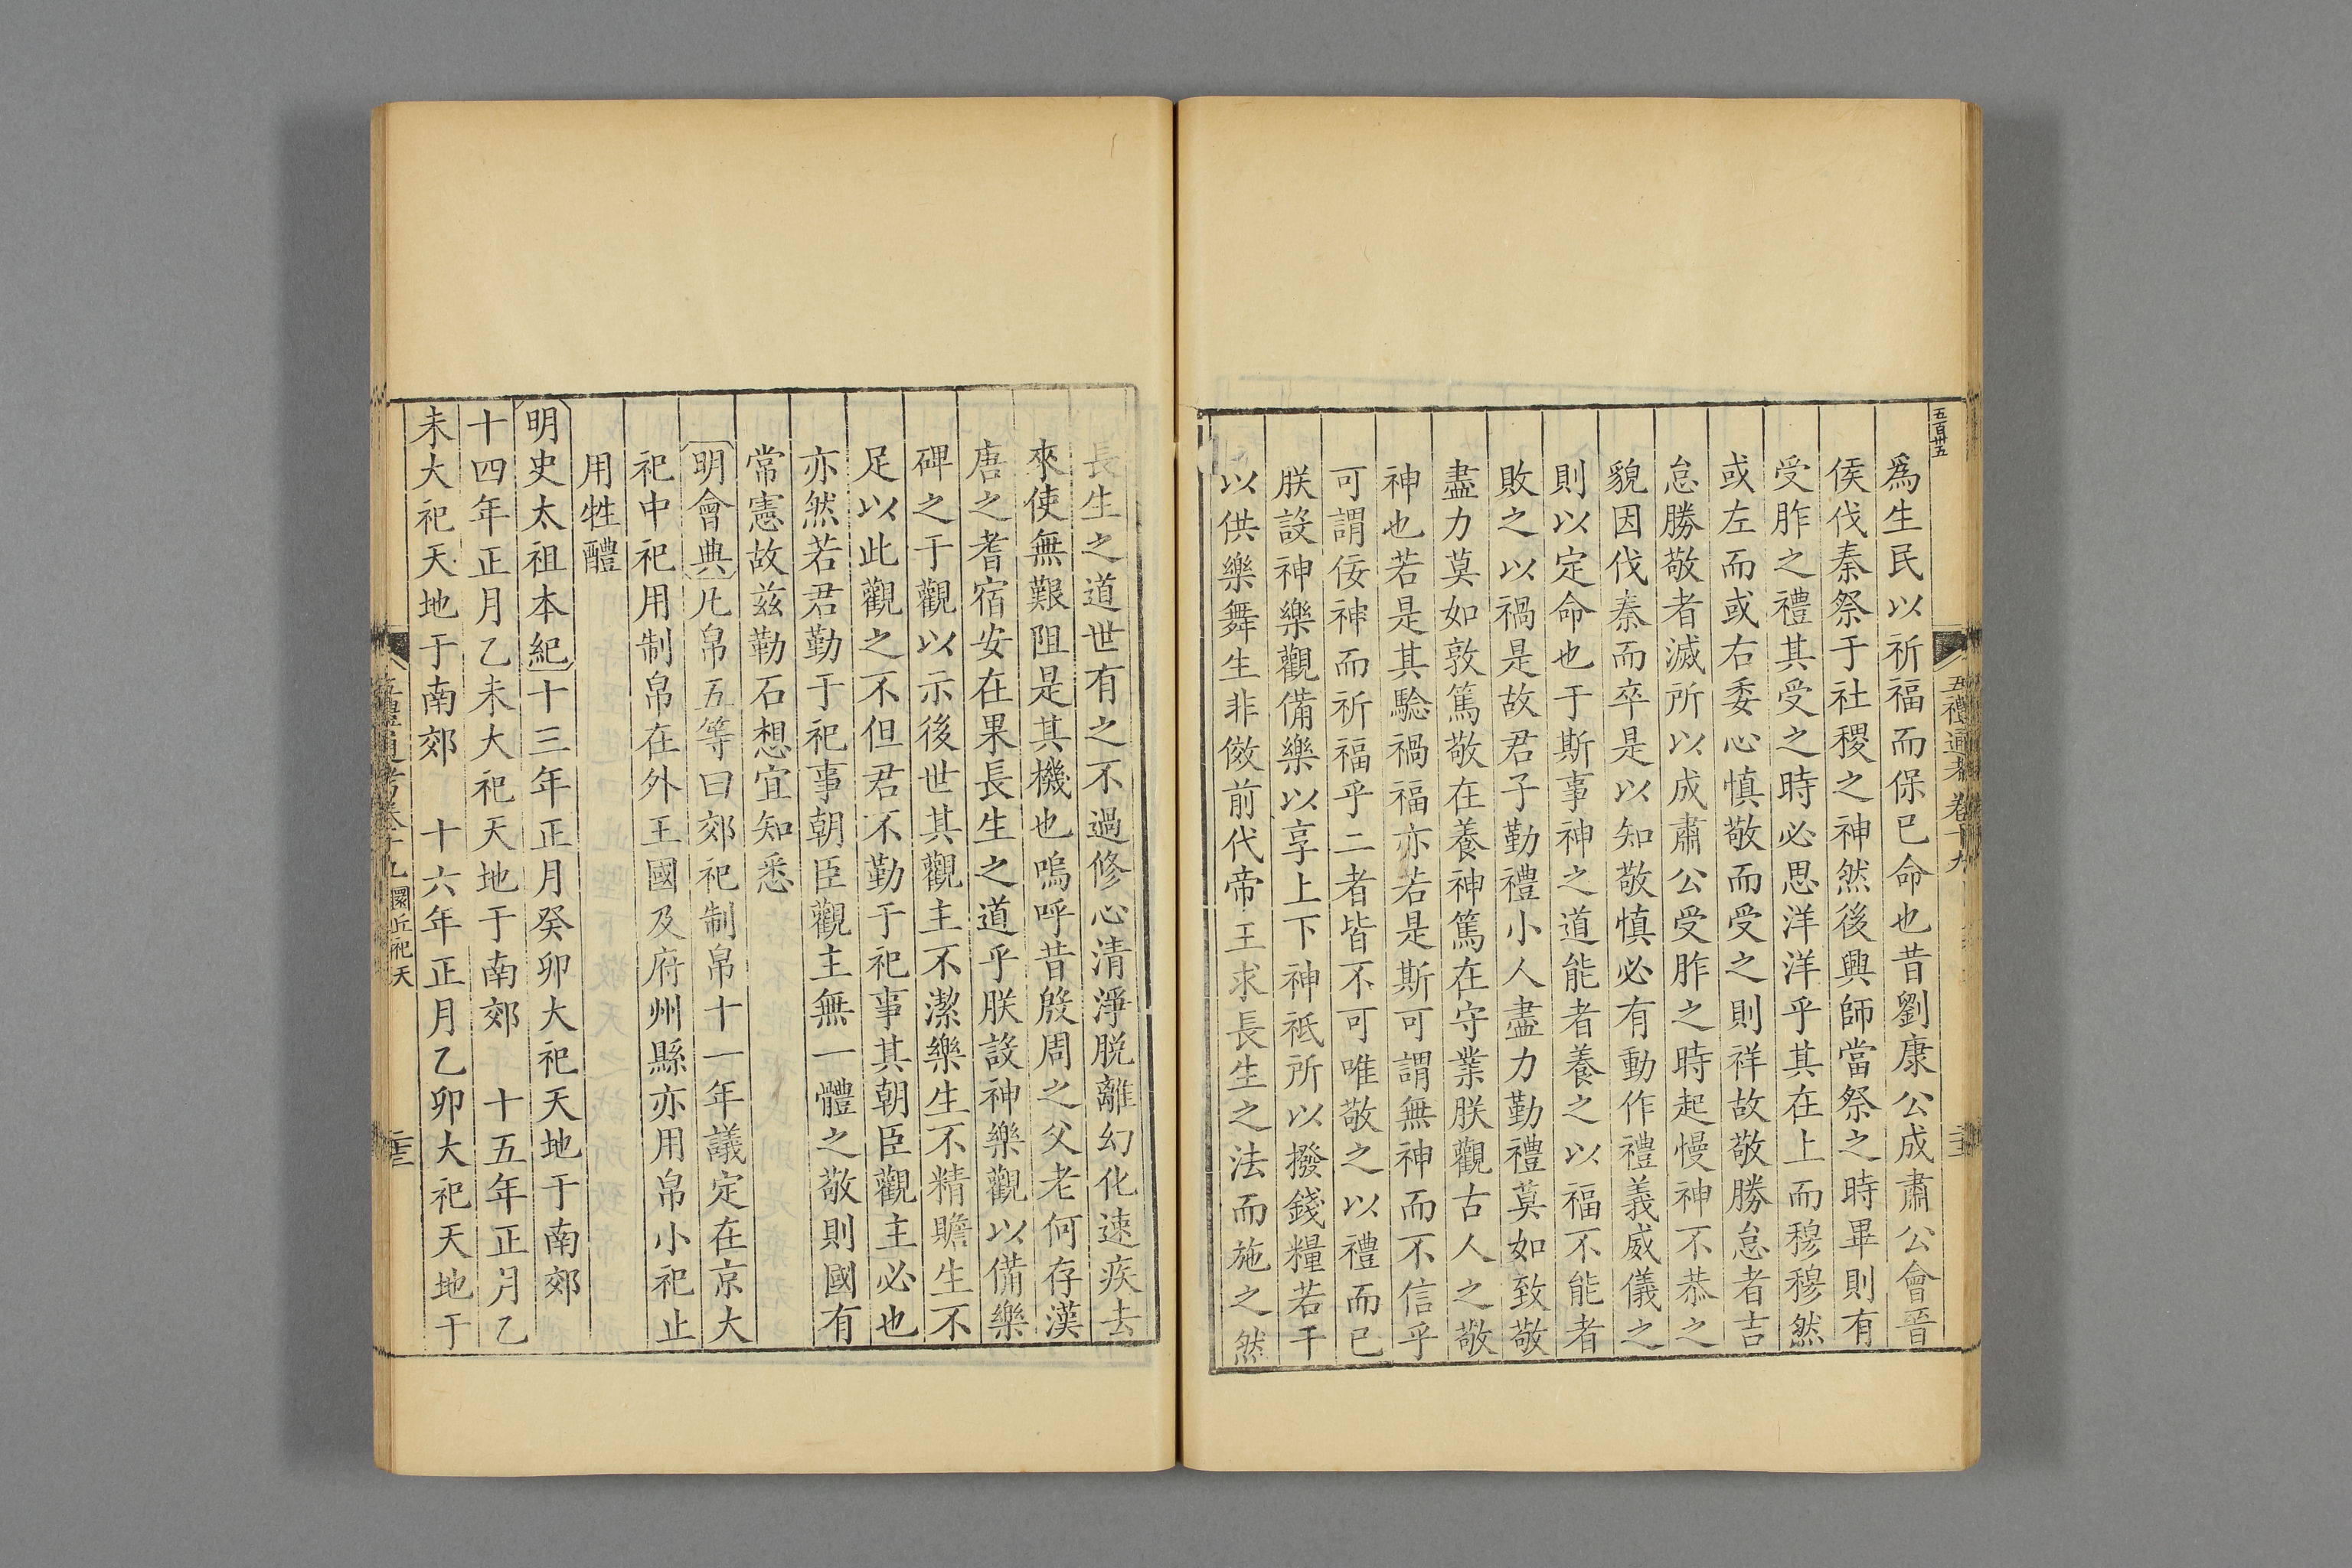 五百卅五
五禮通考卷十九
爲生民以祈福而保已命也昔劉康公成肅公會晉
侯伐秦祭于社稷之神然後興師當祭之時畢則有
受胙之禮其受之時必思洋洋乎其在上而穆穆然
或左而或右委心慎敬而受之則祥故敬勝怠者吉
怠勝敬者滅所以成肅公受胙之時起慢神不恭之
貌因伐秦而卒是以知敬慎必有動作禮義威儀之
則以定命也于斯事神之道能者養之以福不能者
敗之以禍是故君子勤禮小人盡力勤禮莫如致敬
盡力莫如敦篤敬在養神篤在守業朕觀古人之敬
神也若是其騐禍福亦若是斯可謂無神而不信乎
可謂佞神而祈福乎二者皆不可唯敬之以禮而已
朕設神樂觀備樂以享上下神祗所以撥錢糧若干
以供樂舞生非倣前代帝王求長生之法而施之然
長生之道世有之不過修心清淨脫離幻化速疾去
來使無艱阻是其機也嗚呼昔殷周之父老何存漢
唐之耆宿安在果長生之道乎朕設神樂觀以備樂
碑之于觀以示後世其觀主不潔樂生不精贍生不
足以此觀之不但君不勤于祀事其朝臣觀主必也
亦然若君勤于祀事朝臣觀主無一體之敬則國有
常憲故茲勒石想宜知悉
明會典凡帛五等曰郊祀制帛十一年議定在京大
祀中祀用制帛在外王國及府州縣亦用帛小祀止
用牲醴
明史太祖本紀十三年正月癸卯大祀天地于南郊
十四年正月乙未大祀天地于南郊 十五年正月乙
未大祀天地于南郊 十六年正月乙卯大祀天地于
五禮通考卷十九 圜丘祀天